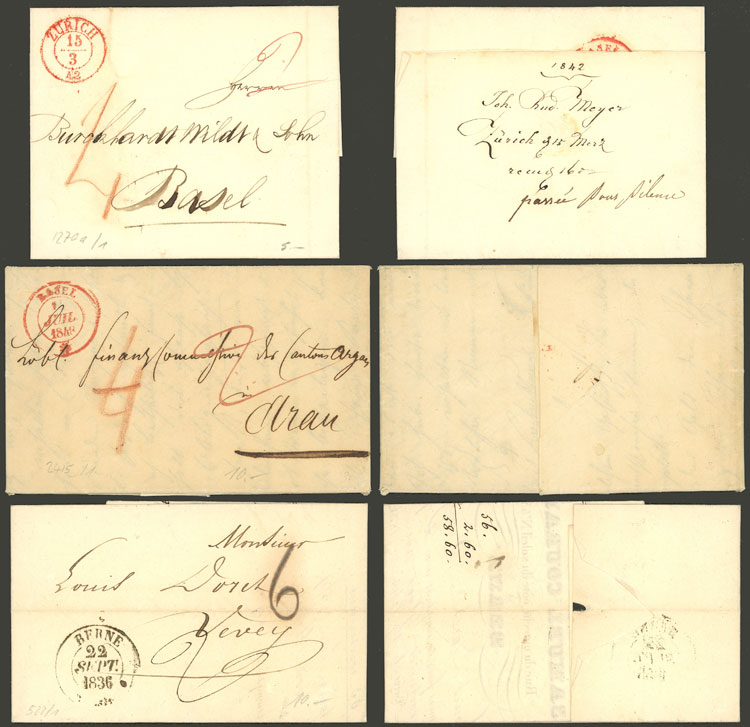 ZÜRICH
15
3
42
Herren
4
Burckhardt Wildt & Sohn
Basel
1270a/1
5.-
BASEL
1842
Joh. Rud. Meyer
Zürich 15 Merz
passée sous silence
BASEL
JUIL
Löbl. Finanz Commission des Cantons Argau
4
in
Arau
10.-
Monsieur
Louis Doret
6
Vevey
BERNE
22
SEPT.
1836
10.-
56.
2.60.
58.60.